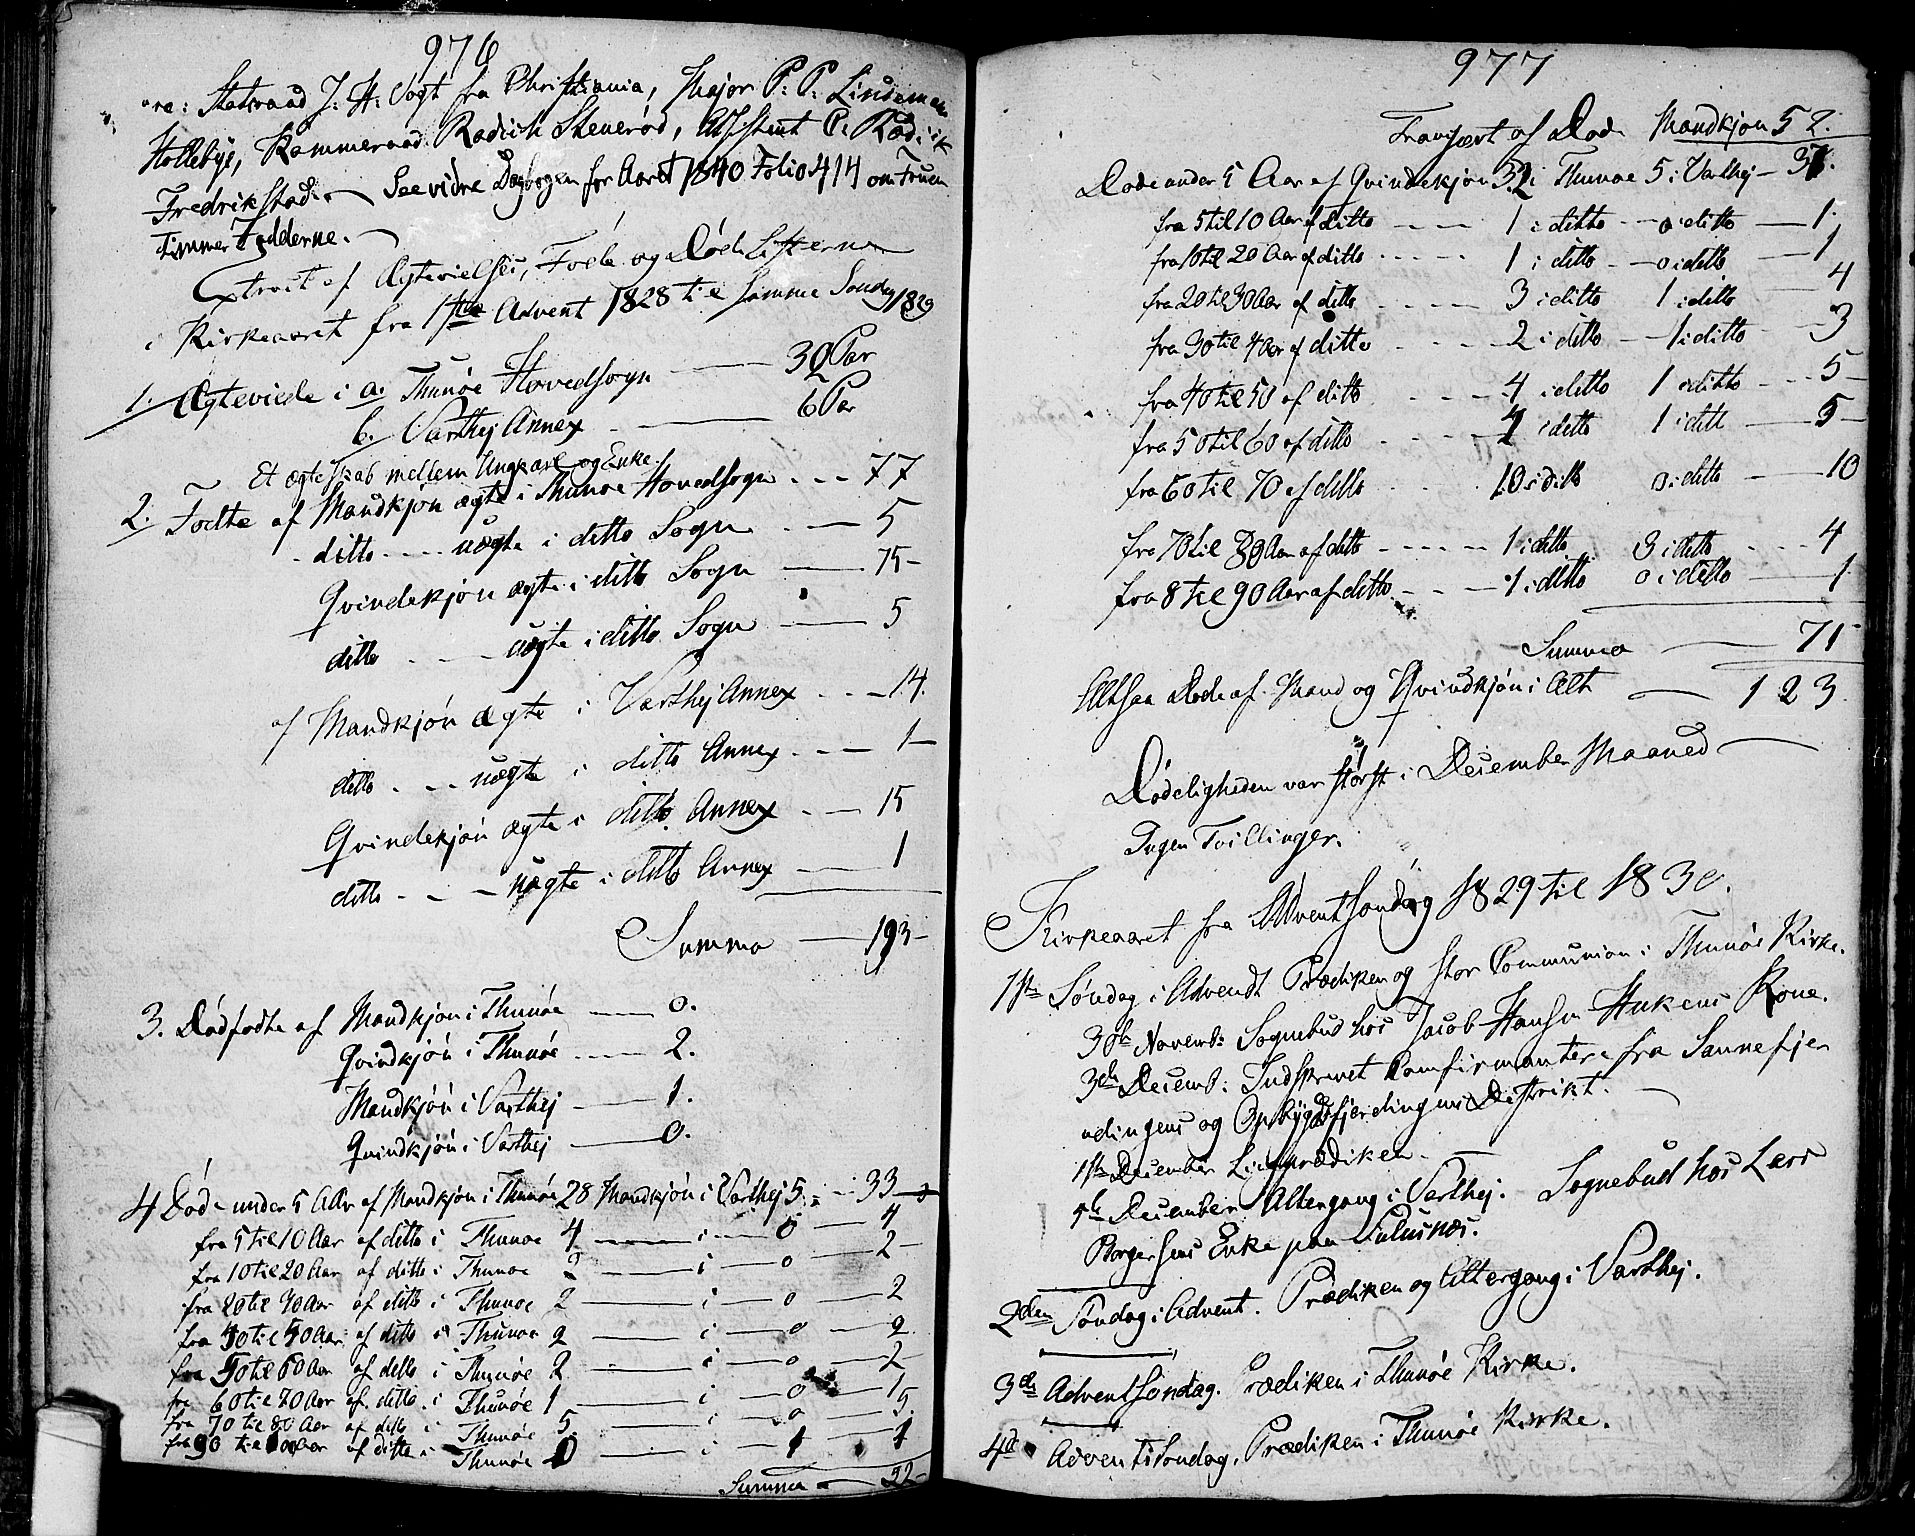 976
Statsraad J: H: Vogt fra Christiania, Major P: P: Lindeman
Hollebye, Kammeraad Radich Stenerød, Assistent P: Radich
Fredrikstad. — See vidre Dagbogen for Aaret 1840 Folio 414 om Fruen
Timmer Fødderne. —
Extract af Ægtevielses, Føde og Døde Listerne
i Kirkeaaret fra 1ste Advent 1828 til samme Søndag 1829
1. Ægteviede i a. Thunøe Hovedsogn — 30 Par
b. Varthej Annex — 6 Par
Et ægteskab mellem Ungkarl og Enke.
2. Fødte af Mandkjøn ægte i Thunøe Hovedsogn - - - 77
ditto - - - uægte i ditto Sogn - — 5
Qvindekjøn ægte i ditto Sogn — 75 -
ditto - - - uægte i ditto Sogn — 5
af Mandkjøn ægte i Varthej Annex - - - 14.
ditto - - - uægte i ditto Annex - - — 1 -
Qvindekjøn ægte i ditto Annex - - — 15
ditto - - - uægte i ditto Annex — 1
Summa — 193 -
3. Dødfødte af Mandkjøn i Thunøe — 0.
Qvindkjøn i Thunøe - - — 2.
Mandkjøn i Varthej — 1.
Qvindkjøn i Varthej — 0.
4 Døde under 5 Aar af Mandkjøn i Thunøe 28 Mandkjøn i Varthej 5. - - 33
fra 5 til 10 Aar af ditto i Thunoe 4 — i — 0 — 4
fra 10 til 20 Aar af ditto i Thunoe 2 — i — 0 — 2 -
fra 20 til 30 Aar af ditto i Thunoe 2 — i — 0 — 2
af ditto i Thunoe 2 — i — 0 — 2
af ditto i Thunøe 2 — i — 0 — 2
fra 60 til 70 Aar af ditto i Thunøe 1 — i — 0 — 1
fra 70 til 80 Aar af ditto i Thunøe 5 — i — 0 — 5.
fra 90 til 100 Aar af ditto i Thunøe 0 — i — 1 — 1
Summa — 52 -
977
Transport af Døde Mandkjøn 52.
Døde under 5 Aar af Qvindekjøn 32 i Thunøe 5 i Varthej — 37.
fra 5 til 10 Aar af ditto - - - - 1 i ditto - - 0 i ditto — 1.
fra 10 til 20 Aar af ditto - - - - 1 i ditto - - 0 i ditto — 1
fra 20 til 30 Aar af ditto - - - - 3 i ditto 1 i ditto — 4
fra 30 til 4 Aar af ditto - - - - 2 i ditto — 1 i ditto - - 3
fra 40 til 50 af ditto - - - - 4 i ditto 1 i ditto - - - 5 -
fra 50 til 60 af ditto - - - - 4 i ditto 1 i ditt — 5 -
fra 60 til 70 af ditto - - 10 i ditto 0 i ditto — 10
fra 70 til 80 Aar af ditto - - - - 1 i ditto 3 i ditto - - - 4
fra 8 til 90 Aar af ditto - - - 1 i ditto 0 i ditto — 1
Summa — 71
Altsaa Døde af Mand og Qvindkjøn i Alt — 123
Dødeligheden var størst i December Maaned —
Ingen Tvillinger.
Kirkeaaret fra Adventsøndag 1829 til 1830.
1ste Søndag i Advendt Prædiken og stor Communion i Thunøe Kirke.
30te Novemb: Sognebud hos Jacob Hansen Hukens Kone.
3die Decemb: Indskrevet Comfirmantere fra Sannefjer
dingens og Opbygdsfjerdingens Distrikt. —
1ste December Liigprædiken —
5te December Altergang i Varthej. Sognebud hos Lars
Borgersens Enke paa
2den Søndag i Advent. Prædiken og Altergang i Varthej.
3die Adventsøndag. Prædiken i Thunøe Kirke.
4de Adventsøndag. Prædiken i Thunøe Kirke.